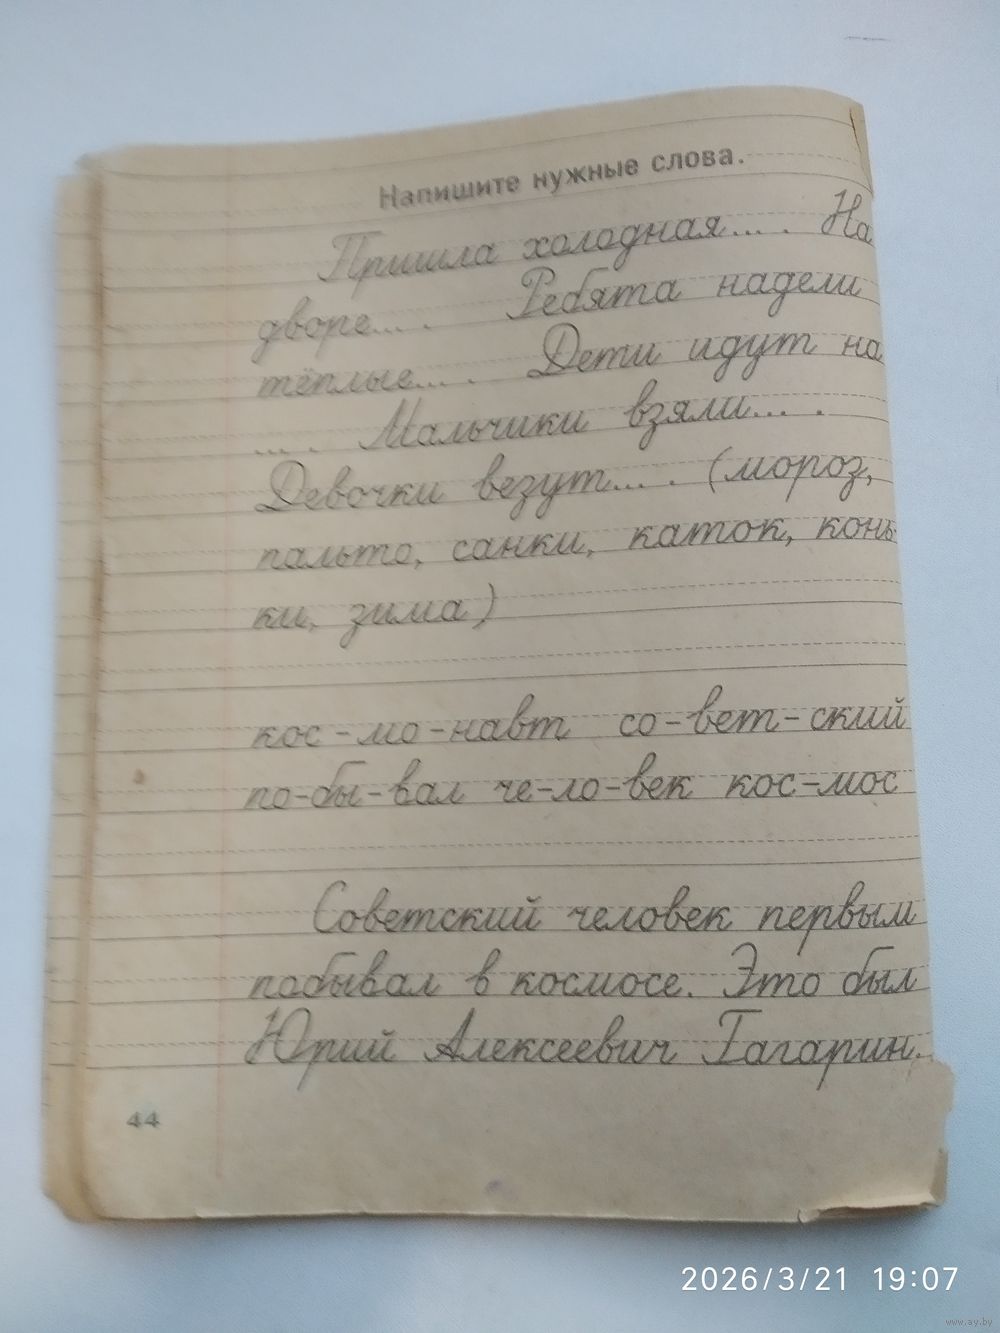 Напишите нужные слова.
Пришла холодная... . На
дворе... . Ребята надели
тёплые... . Дети идут на
... . Мальчики взяли... .
Девочки везут... . (мороз,
пальто, санки, каток, конь-
ки, зима)
кос-мо-навт со-вет-ский
по-бы-вал че-ло-век кос-мос
Советский человек первым
побывал в космосе. Это был
Юрий Алексеевич Гагарин.
44
2026/3/21 19:07
www.ay.by